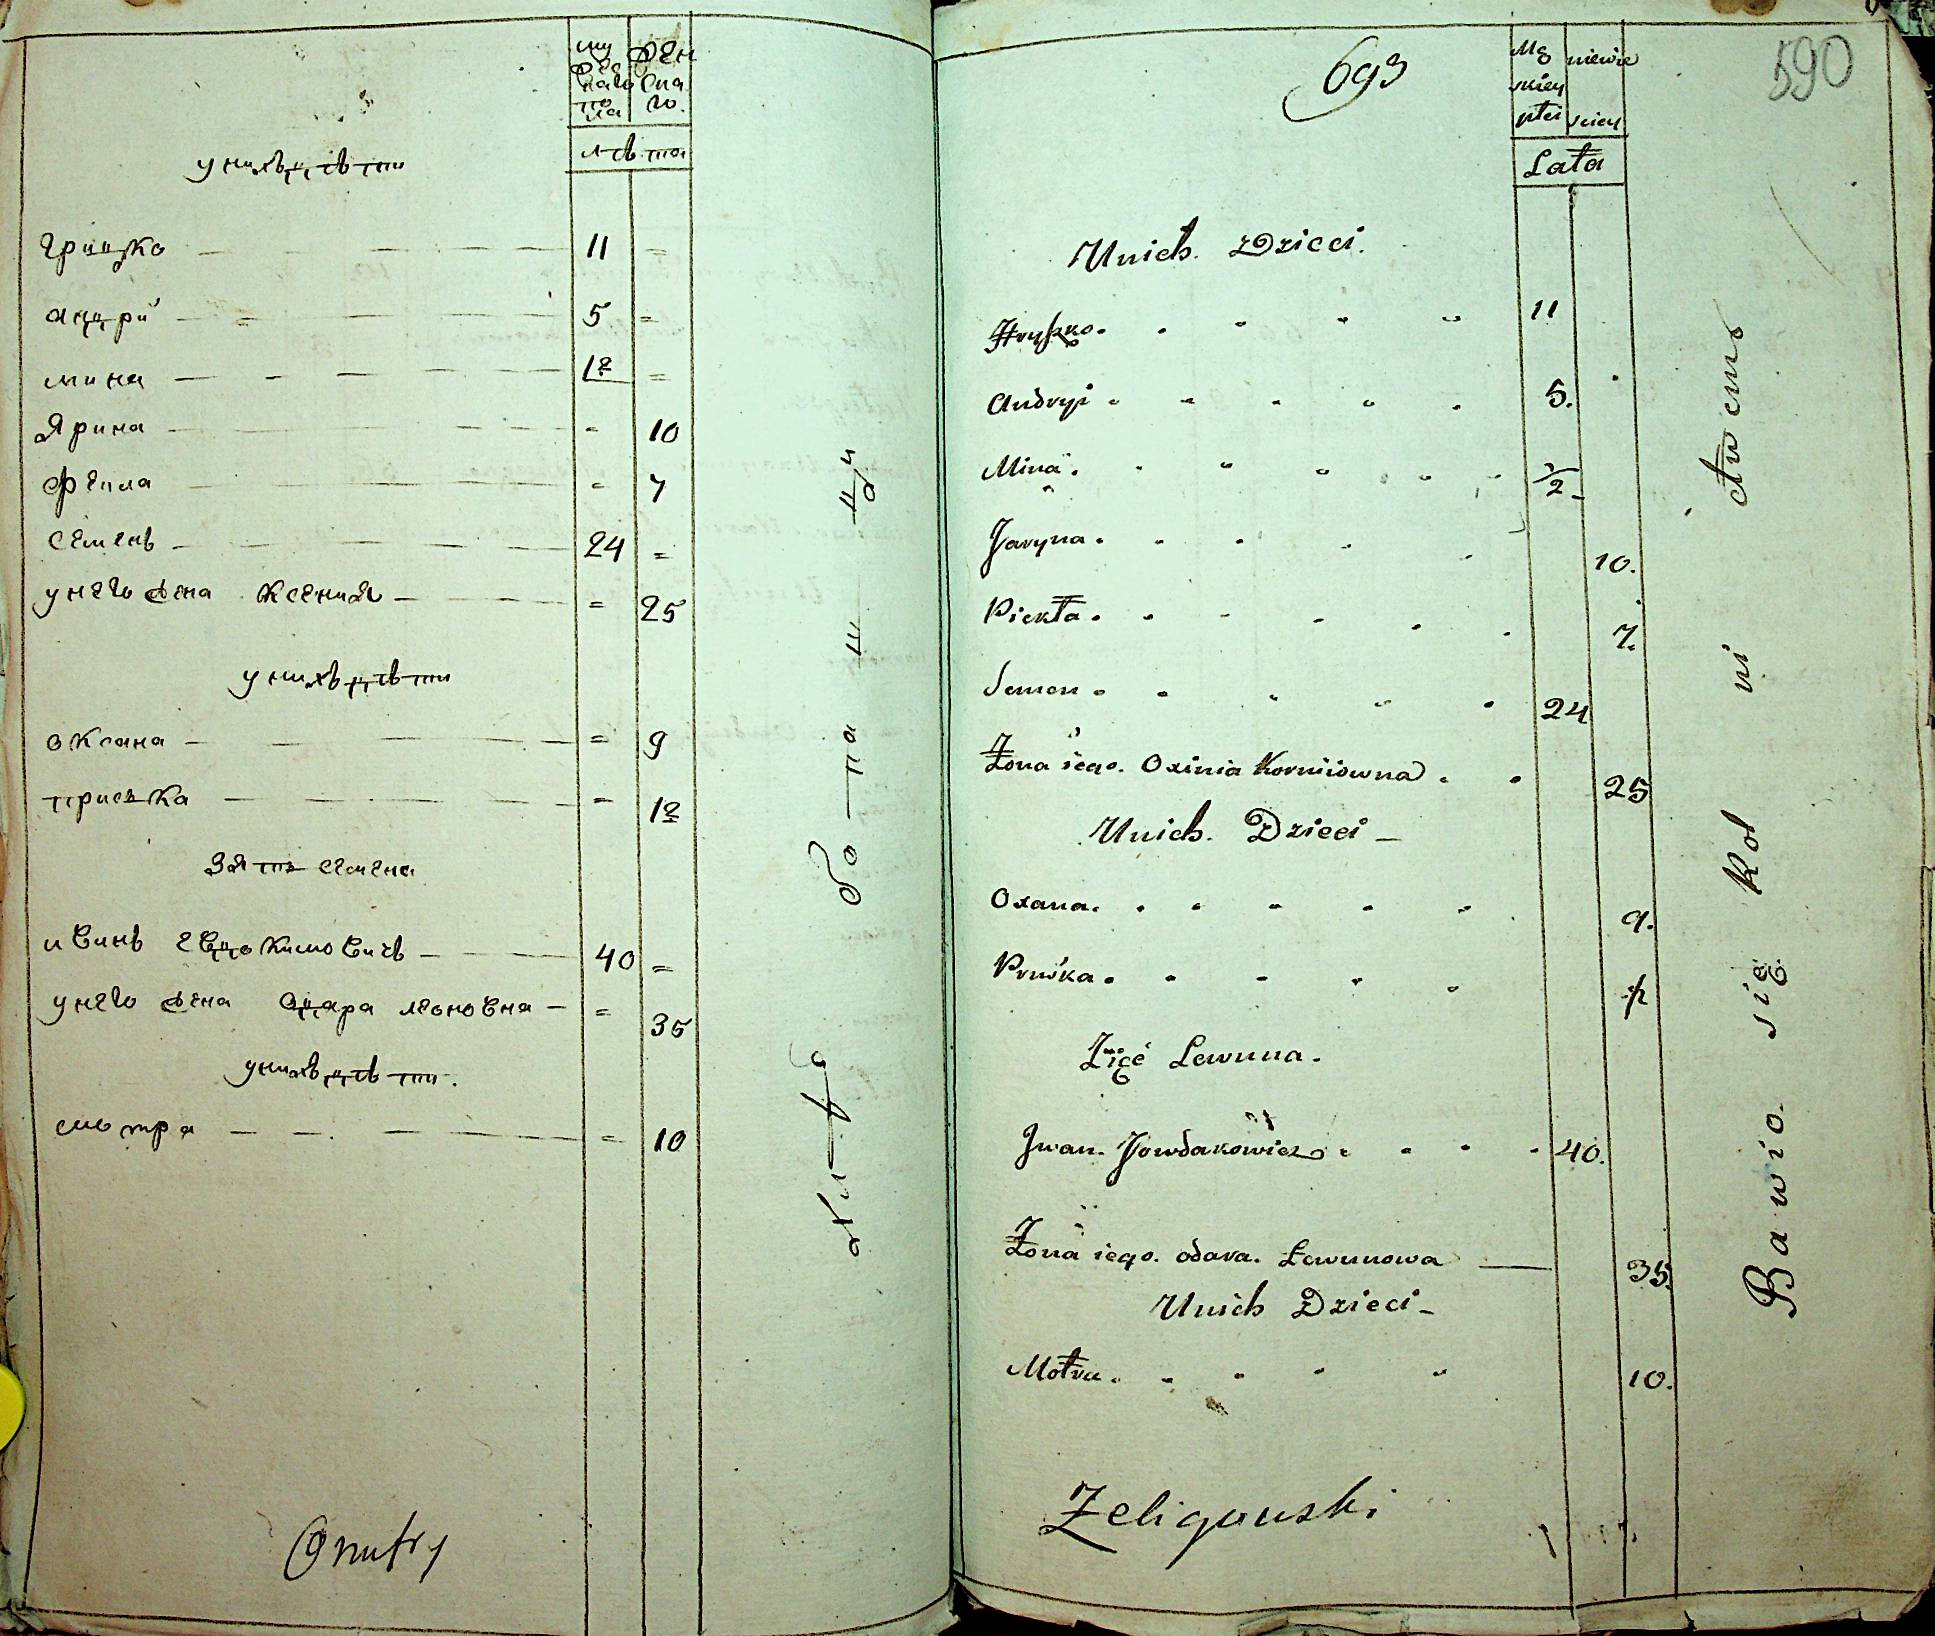 мужескаго пола
женскаго
лѣта
у нихъ дѣти
грицко 11 =
андрій 5 =
мина 1/2 =
Ярина = 10
Фекла = 7
семенъ 24 =
у него жена Ксения = 25
у нихъ дѣти
оксана = 9
приська = 1/2
Зять семена
иванъ евдокимовичъ 40 =
у него жена одара леоновна = 35
у нихъ дѣти.
мотра = 10
693
590
Męskiey płci
niewieściey
Lata
Unich. Dzieci.
Hryszko. 11
Andryi 5.
Mina. 1/2
Jaryna. 10.
Piekła. 7.
Semen 24
Żona iego. Oxinia Korniiowna. 25
Unich. Dzieci
Oxana. 9.
Pruśka. 1/2
Zięć Lewuna.
Jwan. Jowdakowicz 40.
Żona iego. odara. Lewunowa 35.
Unich Dzieci
Motra. 10.
Bawio. się
Żeligowski